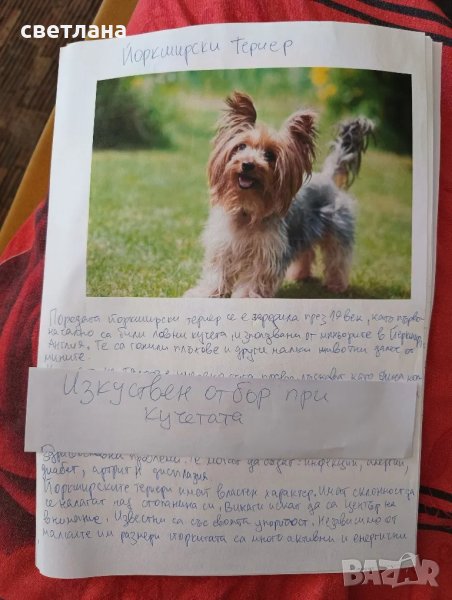 светлана
Йоркширски териер
Породата йоркширски териер се е зародила през 19 век, като първо-
начално са били ловни кучета, използвани от миньорите в
Англия. Те са гонили плъхове и други малки животни далеч от
мините.
Изкуствен отбор при
кучетата
Здравословни проблеми: те могат да бъдат: инфекции, алергии,
диабет, артрит и дисплазия.
Йоркширските териери имат властен характер. Имат склонност да
се налагат над стопанина си. Винаги искат да са център на
внимание. Известни са със своята упоритост. Независимо от
малките им размери йоркитата са много активни и енергични
BAZAR